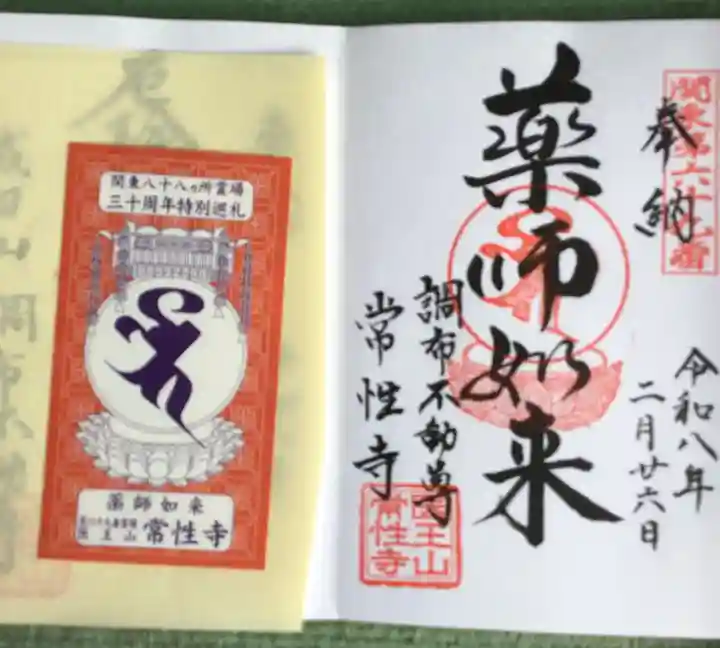 関東第六十七番
奉納
薬師如来
令和八年
二月廿六日
調布不動尊
常性寺
医王山
常性寺
関東八十八ヵ所霊場
三十周年特別巡礼
薬師如来
医王山
常性寺